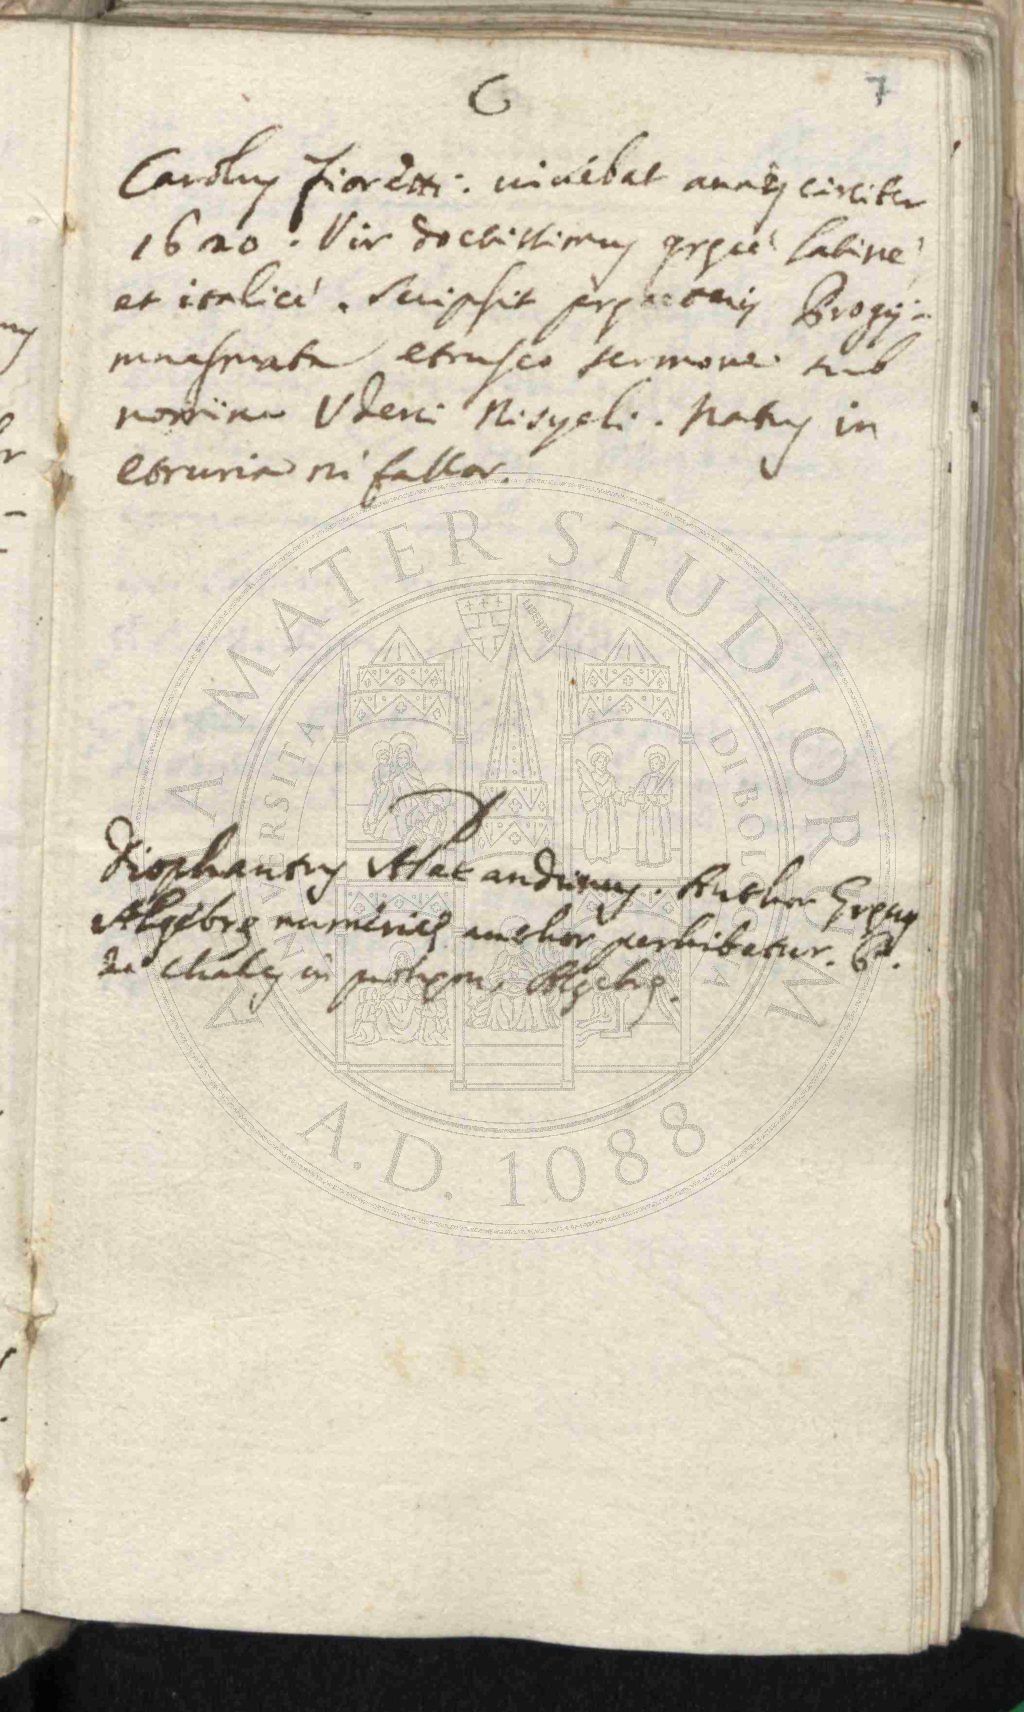 C
7
Carolus Fioretti. vivebat annis circiter
1620. Vir doctissimus gręcè latinè
et italicè. Scripsit Progy-
mnasmata etrusco sermone sub
nomine Udeni Nisyeli. Natus in
etruria ni fallor.
D
Diophantus Alexandrinus. Author Gręcus
Algebrę numericę author perhibetur. P.
de Chales in Algebrę.
ALMA MATER STUDIORUM
UNIVERSITÀ DI BOLOGNA
LIBERTAS
A.D. 1088